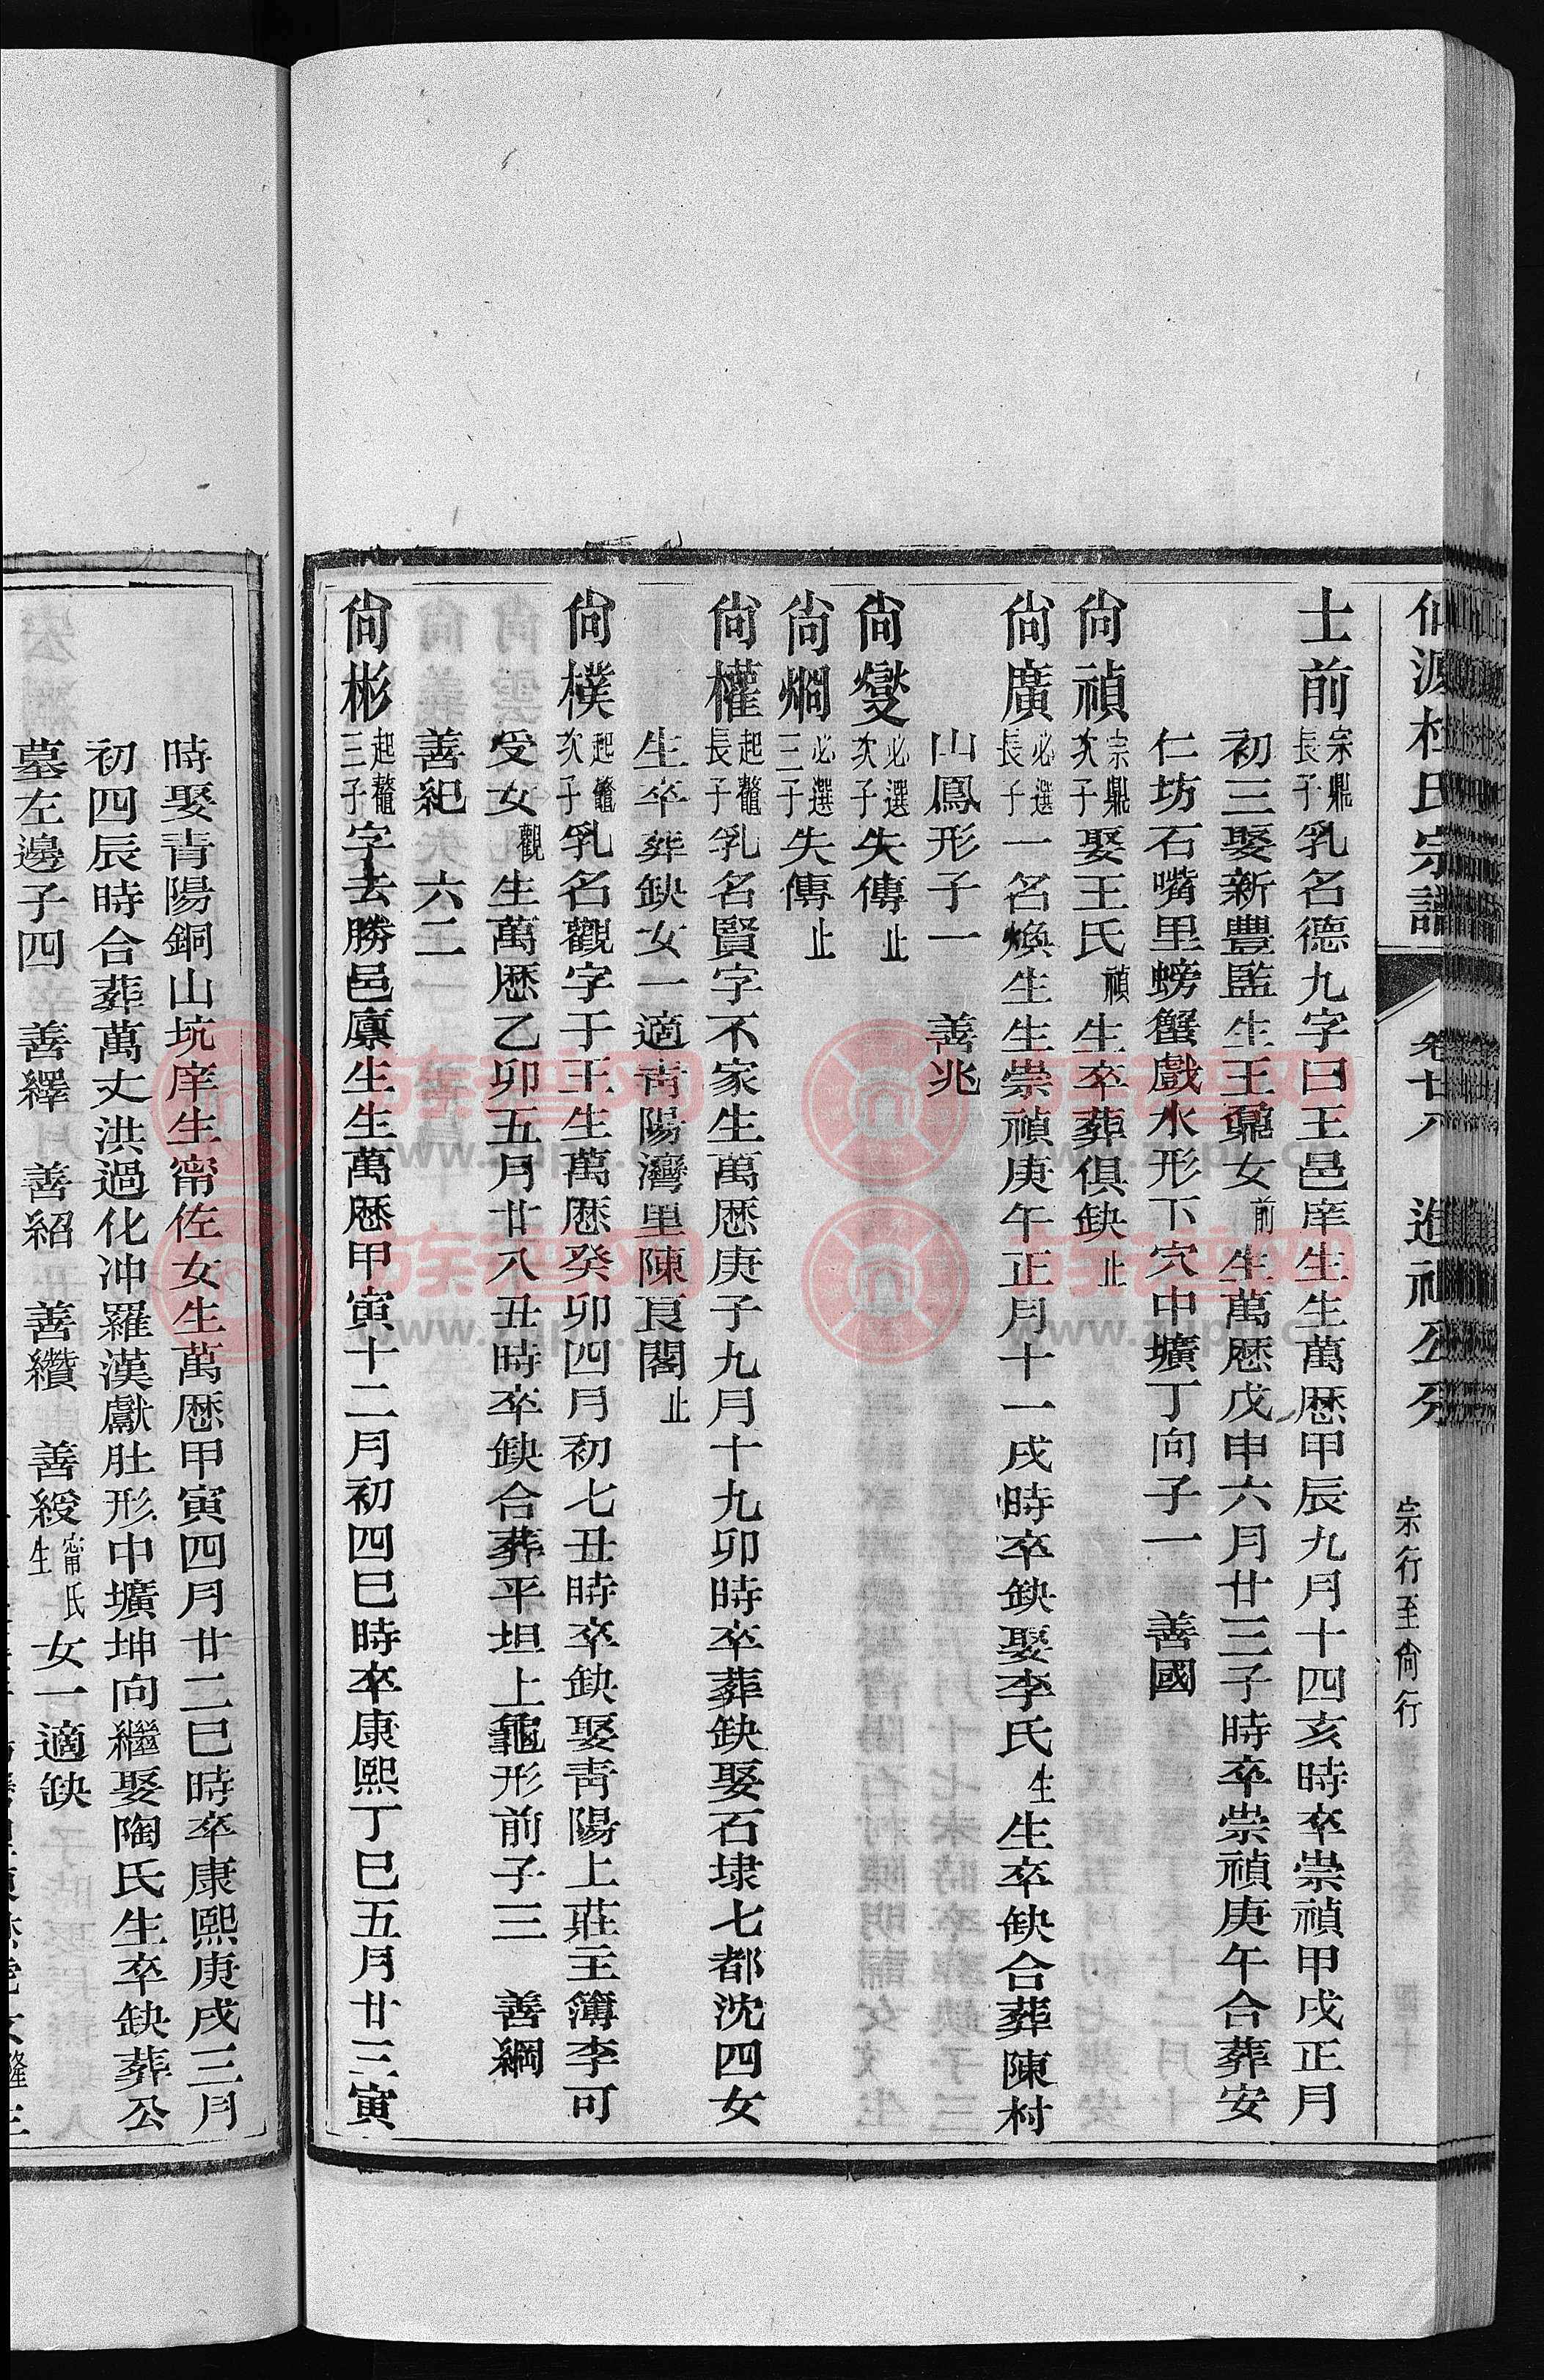 仙源杜氏宗譜 卷廿八 進祖公分 宗行至尙行
士前宗鼎長子乳名德九字曰王邑庠生生萬歷甲辰九月十四亥時卒崇禎甲戌正月
初三娶新豐監生王鼐女前生萬歷戊申六月廿三子時卒崇禎庚午合葬安
仁坊石嘴里螃蟹戲水形下穴中壙丁向子一 善國
尙禎宗鼎次子娶王氏禎生卒葬俱缺止
尙廣必選長子一名煥生生崇禎庚午正月十一戌時卒缺娶李氏生生卒缺合葬陳村
山鳳形子一 善兆
尙燮必選次子失傳止
尙烱必選三子失傳止
尙權起鼇長子乳名賢字不家生萬歷庚子九月十九卯時卒葬缺娶石埭七都沈四女
生卒葬缺女一適靑陽灣里陳良閣止
尙樸起鼇次子乳名觀字于王生萬歷癸卯四月初七丑時卒缺娶靑陽上莊主簿李可
受女觀生萬歷乙卯五月廿八丑時卒缺合葬平坦上龜形前子三 善綱
善紀 六二
尙彬起鼇三子字去勝邑廩生生萬歷甲寅十二月初四巳時卒康熙丁巳五月廿三寅
時娶靑陽銅山坑庠生甯佐女生萬歷甲寅四月廿二巳時卒康熙庚戌三月
初四辰時合葬萬丈洪過化冲羅漢獻肚形中壙坤向繼娶陶氏生卒缺葬公
墓左邊子四 善繹 善紹 善纘 善綬甯氏生女一適缺
族譜网
www.zupu.cn
族譜网
www.zupu.cn
族譜网
www.zupu.cn
族譜网
www.zupu.cn